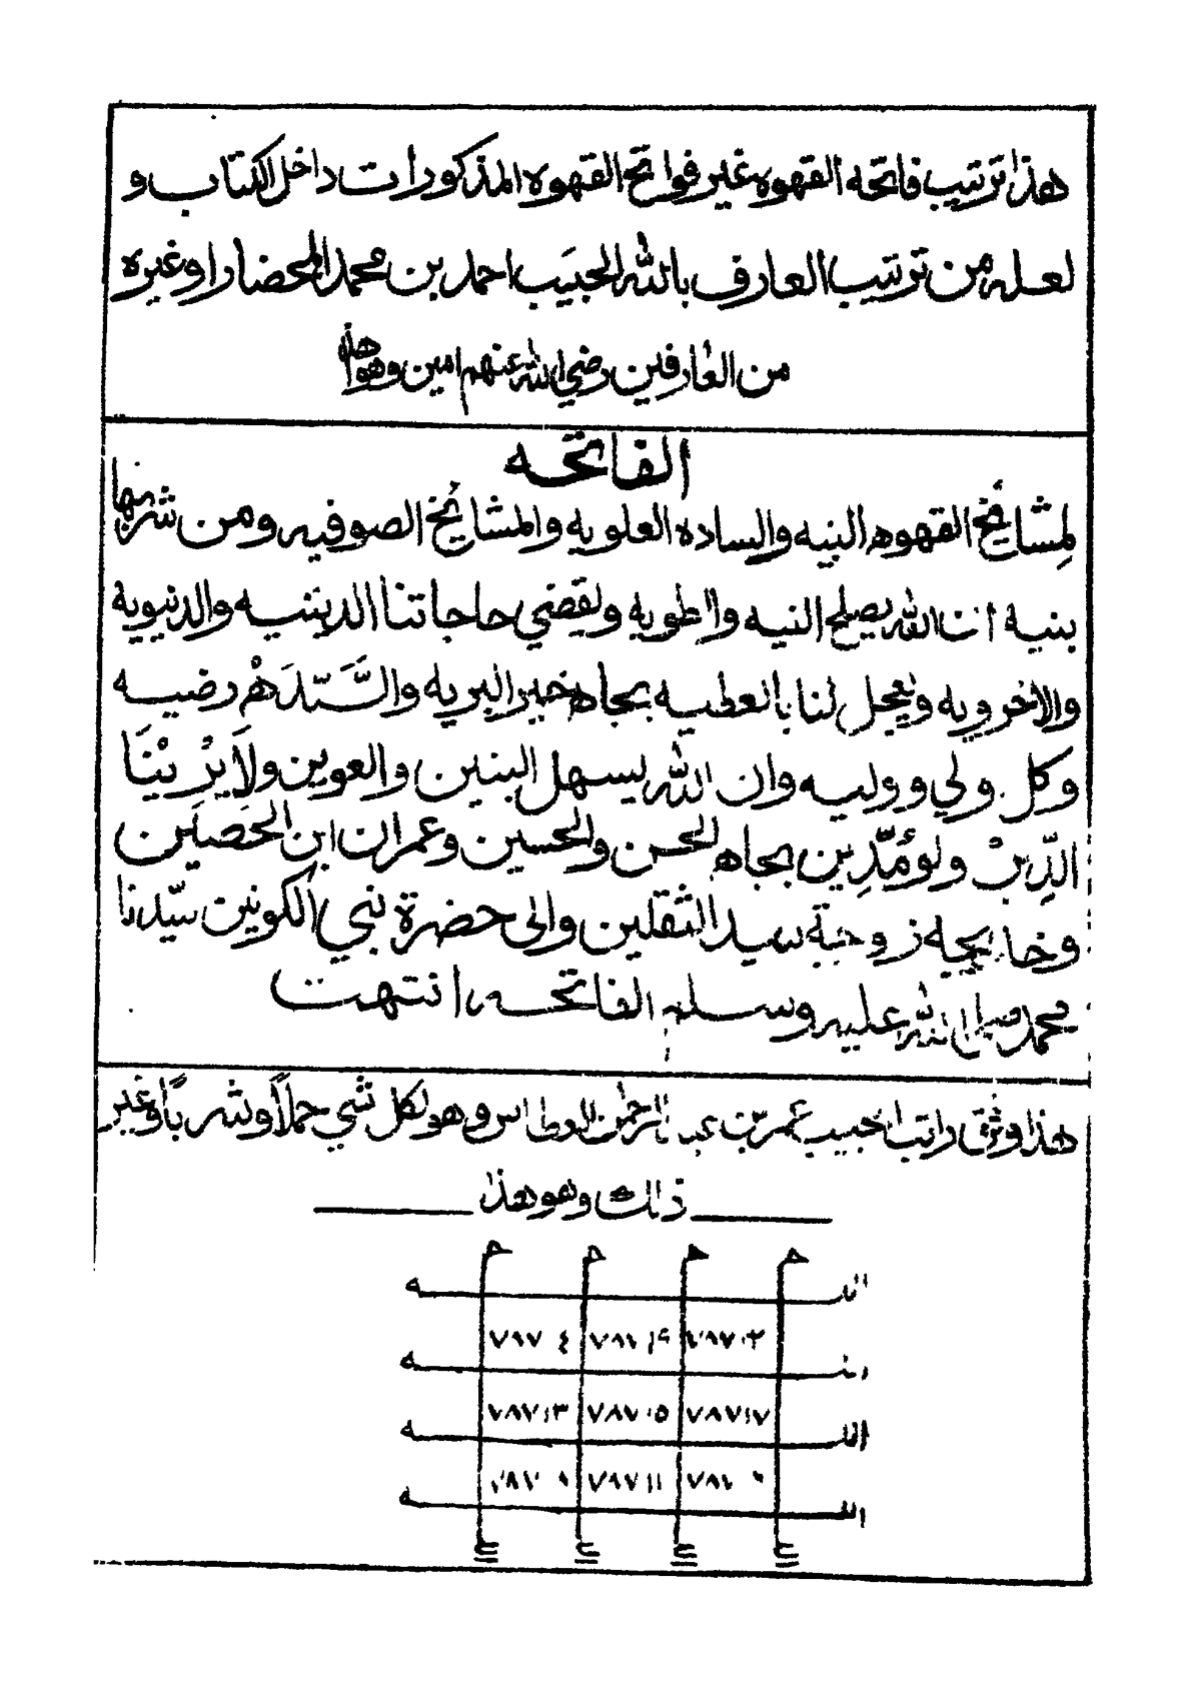 هذا ترتيب فاتحه القهوه غير فواتح القهوه المذكورات داخل الكتاب و
لعله من ترتيب العارف بالله الحبيب احمد بن محمد المحضار او غيره
من العارفين رضي الله عنهم امين وهو هذا
الفاتحه
لمشايخ القهوه البنيه والساده العلويه والمشايخ الصوفيه ومن شربها
بنيه ان الله يصلح النيه والطويه ويقضي حاجاتنا الدينيه والدنيويه
والاخرويه ويعجل لنا بالعطيه بجاه خير البريه والسيده رضيه
وكل ولي ووليه وان الله يسهل البنين والعوين ولا يرينا
الدين ولو مدين بجاه الحسن والحسين وعمران ابن الحصين
وخديجه زوجة سيد الثقلين والى حضرة نبي الكونين سيّدنا
محمد صلى الله عليه وسلم الفاتحه انتهت
هذا وفق راتب الحبيب عمر بن عبد الرحمن العطاس وهو لكل شي حملاً وشرباً وغير
ذالك وهو هذا